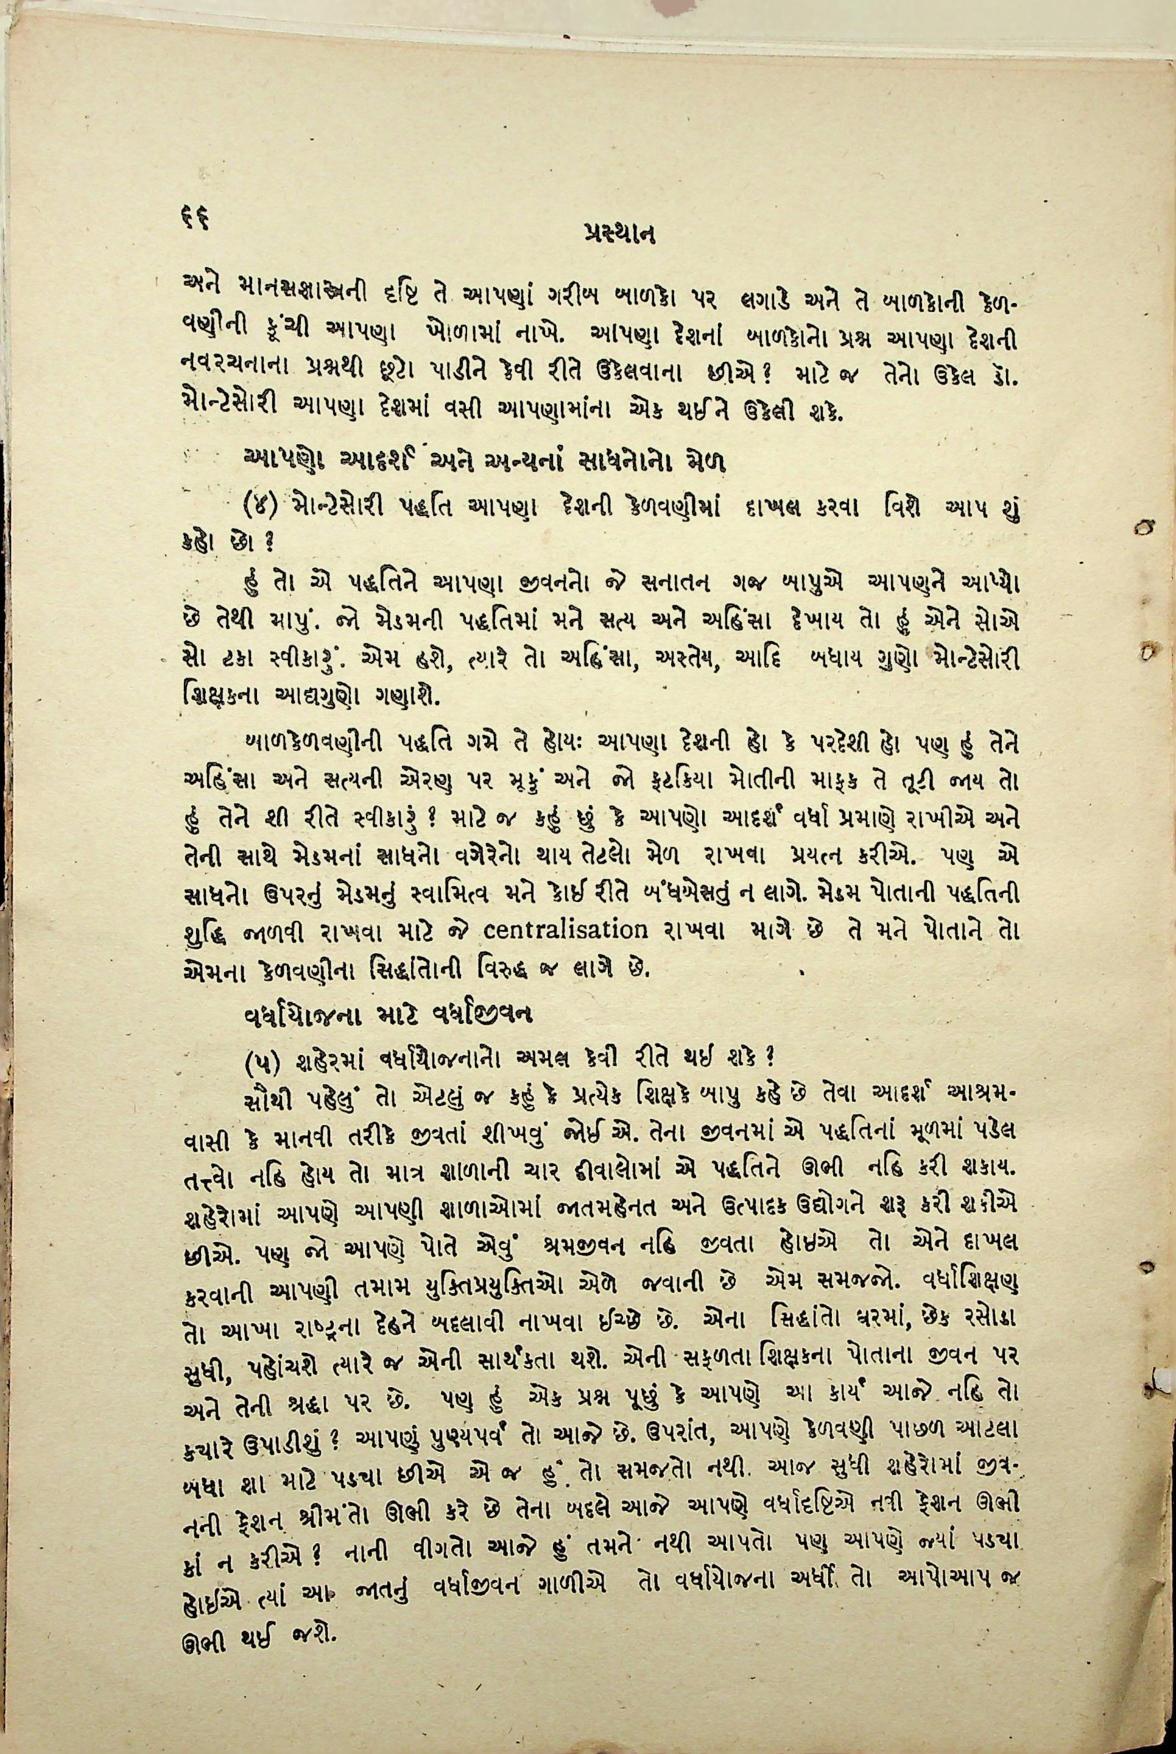 ૬૬
પ્રસ્થાન
અને માનસશાસ્ત્રની દૃષ્ટિ તે આપણાં ગરીબ બાળકો પર લગાડે અને તે બાળકોની કેળ-
વણીની કૂંચી આપણા ખોળામાં નાખે. આપણા દેશનાં બાળકોનો પ્રશ્ન આપણા દેશની
નવરચનાના પ્રશ્નથી છૂટો પાડીને કેવી રીતે ઉકેલવાના છીએ? માટે જ તેનો ઉકેલ ડૉ.
મોન્ટેસોરી આપણા દેશમાં વસી આપણામાંના એક થઈને ઉકેલી શકે.
આપણો આદર્શ અને અન્યનાં સાધનોનો મેળ
(૪) મોન્ટેસોરી પદ્ધતિ આપણા દેશની કેળવણીમાં દાખલ કરવા વિશે આપ શું
કહો છો?
હું તો એ પદ્ધતિને આપણા જીવનનો જે સનાતન ગજ બાપુએ આપણને આપ્યો
છે તેથી માપું. જો મેડમની પદ્ધતિમાં મને સત્ય અને અહિંસા દેખાય તો હું એને સોએ
સો ટકા સ્વીકારું. એમ હશે, ત્યારે તો અહિંસા, અસ્તેય, આદિ બધાય ગુણો મોન્ટેસોરી
શિક્ષકના આદ્યગુણો ગણાશે.
બાળકેળવણીની પદ્ધતિ ગમે તે હોયઃ આપણા દેશની હો કે પરદેશી હો પણ હું તેને
અહિંસા અને સત્યની એરણ પર મૂકું અને જો ફટકિયા મોતીની માફક તે તૂટી જાય તો
હું તેને શી રીતે સ્વીકારું? માટે જ કહું છું કે આપણો આદર્શ વર્ધા પ્રમાણે રાખીએ અને
તેની સાથે મેડમનાં સાધનો વગેરેનો થાય તેટલો મેળ રાખવા પ્રયત્ન કરીએ. પણ એ
સાધનો ઉપરનું મેડમનું સ્વામિત્વ મને કોઈ રીતે બંધબેસતું ન લાગે. મેડમ પોતાની પદ્ધતિની
શુદ્ધિ જાળવી રાખવા માટે જે centralisation રાખવા માગે છે તે મને પોતાને તો
એમના કેળવણીના સિદ્ધાંતોની વિરુદ્ધ જ લાગે છે.
વર્ધાયોજના માટે વર્ધાજીવન
(૫) શહેરમાં વર્ધાયોજનાનો અમલ કેવી રીતે થઈ શકે?
સૌથી પહેલું તો એટલું જ કહું કે પ્રત્યેક શિક્ષકે બાપુ કહે છે તેવા આદર્શ આશ્રમ-
વાસી કે માનવી તરીકે જીવતાં શીખવું જોઈએ. તેના જીવનમાં એ પદ્ધતિનાં મૂળમાં પડેલ
તત્ત્વો નહિ હોય તો માત્ર શાળાની ચાર દીવાલોમાં એ પદ્ધતિને ઊભી નહિ કરી શકાય.
શહેરોમાં આપણે આપણી શાળાઓમાં જાતમહેનત અને ઉત્પાદક ઉદ્યોગને શરૂ કરી શકીએ
છીએ. પણ જો આપણે પોતે એવું શ્રમજીવન નહિ જીવતા હોઈએ તો એને દાખલ
કરવાની આપણી તમામ યુક્તિપ્રયુક્તિઓ એળે જવાની છે એમ સમજજો. વર્ધાશિક્ષણ
તો આખા રાષ્ટ્રના દેહને બદલાવી નાખવા ઈચ્છે છે. એના સિદ્ધાંતો ઘરમાં, છેક રસોડા
સુધી, પહોંચશે ત્યારે જ એની સાર્થકતા થશે. એની સફળતા શિક્ષકના પોતાના જીવન પર
અને તેની શ્રદ્ધા પર છે. પણ હું એક પ્રશ્ન પૂછું કે આપણે આ કાર્ય આજે નહિ તો
કયારે ઉપાડીશું? આપણું પુણ્યપર્વ તો આજે છે. ઉપરાંત, આપણે કેળવણી પાછળ આટલા
બધા શા માટે પડયા છીએ એ જ હું તો સમજતો નથી. આજ સુધી શહેરોમાં જીવ-
નની ફેશન શ્રીમંતો ઊભી કરે છે તેના બદલે આજે આપણે વર્ધાદૃષ્ટિએ નવી ફેશન ઊભી
કાં ન કરીએ? નાની વીગતો આજે હું તમને નથી આપતો પણ આપણે જ્યાં પડયા
હોઈએ ત્યાં આ જાતનું વર્ધાજીવન ગાળીએ તો વર્ધાયોજના અર્ધી તો આપોઆપ જ
ઊભી થઈ જશે.